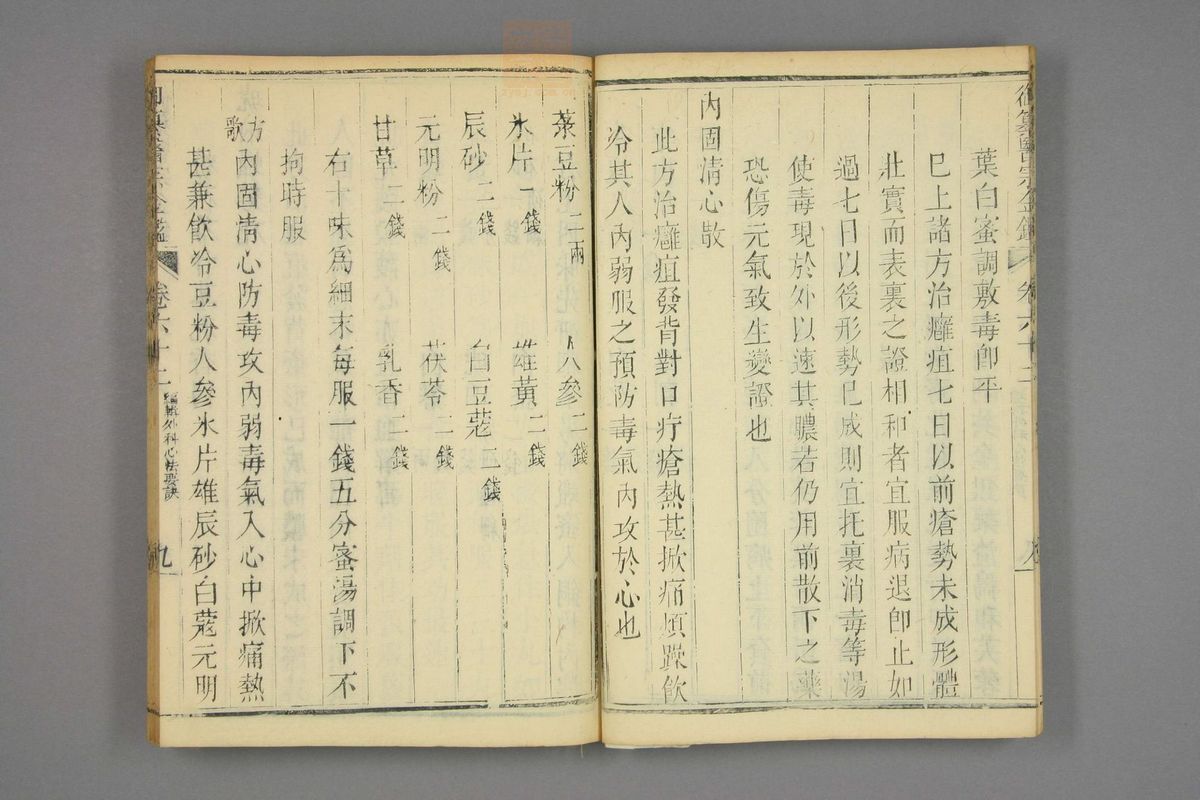 葉白蜜調敷毒卽平
巳上諸方治癰疽七日以前瘡勢未成形體
壯實而表裏之證相和者宜服病退卽止如
過七日以後形勢巳成則宜托裏消毒等湯
使毒現於外以速其膿若仍用前散下之藥
恐傷元氣致生變證也
內固清心散
此方治癰疽發背對口疔瘡熱甚掀痛煩躁飲
冷其人內弱服之預防毒氣內攻於心也
菉豆粉二兩 人參二錢
氷片一錢 雄黃二錢
辰砂二錢 白豆蔻二錢
元明粉二錢 茯苓二錢
甘草二錢 乳香二錢
右十味爲細末每服一錢五分蜜湯調下不
拘時服
方歌 內固清心防毒攻內弱毒氣入心中掀痛熱
甚兼飲冷豆粉人參氷片雄辰砂白蔻元明
御纂醫宗金鑑 卷六十二 編輯外科心法要訣 九